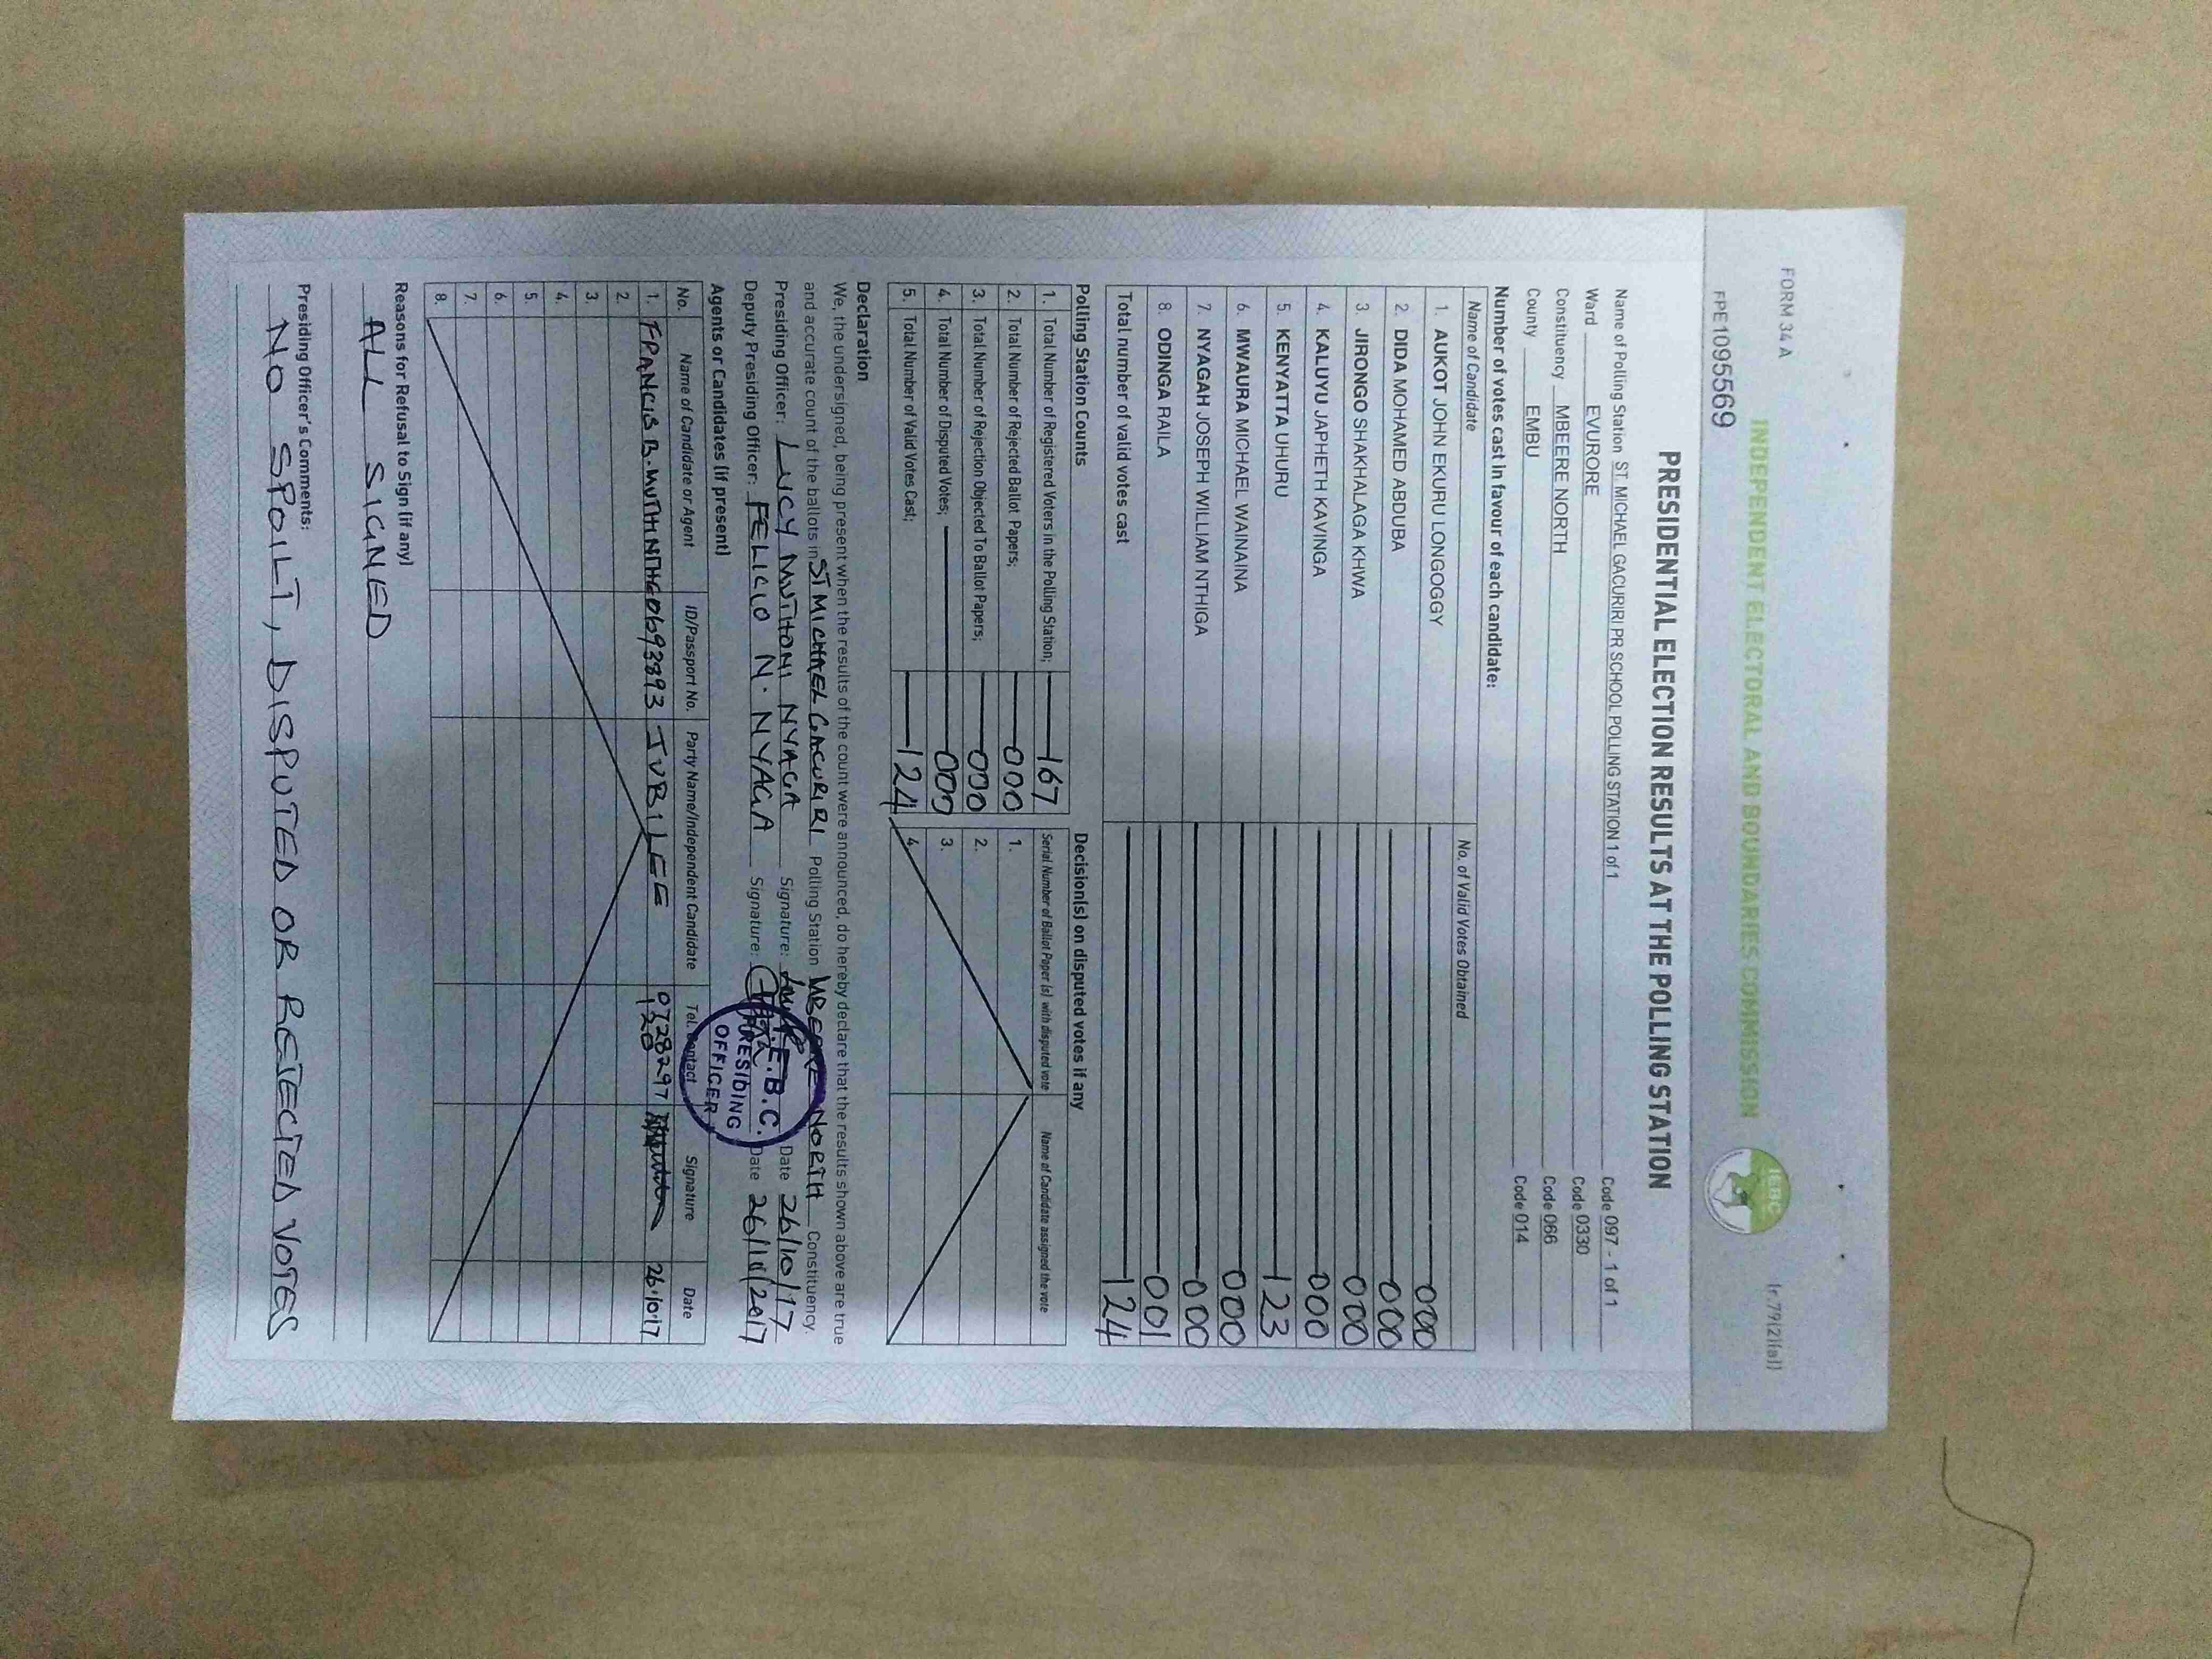 FORM 34 A
(r.79(2)(a))
INDEPENDENT ELECTORAL AND BOUNDARIES COMMISSION
IEBC
PPE1095569
PRESIDENTIAL ELECTION RESULTS AT THE POLLING STATION
Name of Polling Station ST. MICHAEL GACURIRI PR SCHOOL POLLING STATION 1 of 1 Code 097 - 1 of 1
Ward EVURORE Code 0330
Constituency MBEERE NORTH Code 066
County EMBU Code 014
Number of votes cast in favour of each candidate:
Name of Candidate No. of Valid Votes Obtained
1. AUKOT JOHN EKURU LONGOGGY 000
2. DIDA MOHAMED ABDUBA 000
3. JIRONGO SHAKHALAGA KHWA 000
4. KALUYU JAPHETH KAVINGA 000
5. KENYATTA UHURU 123
6. MWAURA MICHAEL WAINAINA 000
7. NYAGAH JOSEPH WILLIAM NTHIGA 000
8. ODINGA RAILA 001
Total number of valid votes cast 124
Polling Station Counts Decision(s) on disputed votes if any
1. Total Number of Registered Voters in the Polling Station; 167 Serial Number of Ballot Paper (s) with disputed vote Name of Candidate assigned the vote
2. Total Number of Rejected Ballot Papers; 000 1.
3. Total Number of Rejection Objected To Ballot Papers; 000 2.
4. Total Number of Disputed Votes; 000 3.
5. Total Number of Valid Votes Cast; 124 4.
Declaration
We, the undersigned, being present when the results of the count were announced, do hereby declare that the results shown above are true
and accurate count of the ballots in ST MICHAEL GACURIRI Polling Station MBEERE NORTH Constituency.
Presiding Officer: LUCY MUTHONI NYAGA Signature: Date 26/10/17
Deputy Presiding Officer: FELICIO N. NYAGA Signature: Date 26/10/2017
I.E.B.C.
PRESIDING
OFFICER
Agents or Candidates (if present)
No. Name of Candidate or Agent ID/Passport No. Party Name/Independent Candidate Tel. Contact Signature Date
1. FRANCIS B. JUBILEE 0728297 120 26.10.17
2.
3.
4.
5.
6.
7.
8.
Reasons for Refusal to Sign (if any)
ALL SIGNED
Presiding Officer's Comments:
NO SPOILT, DISPUTED OR REJECTED VOTES